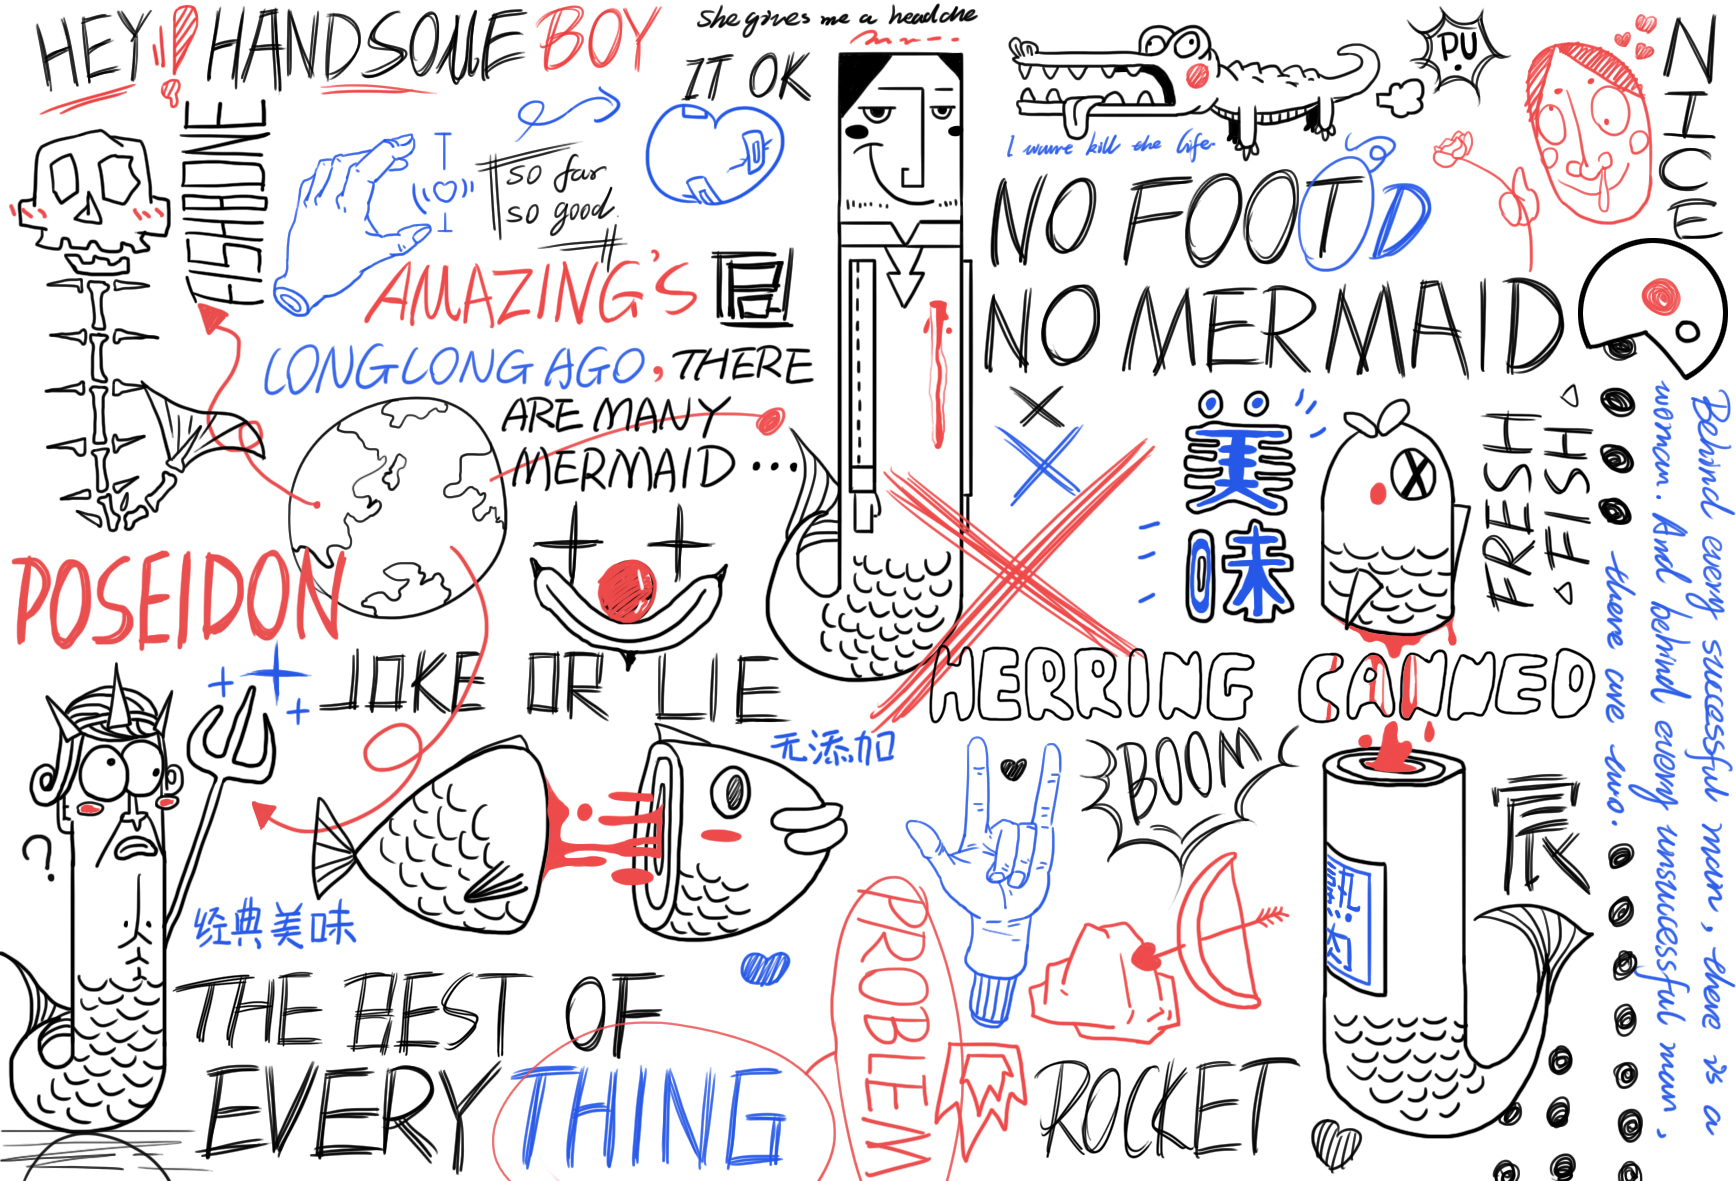 HEY! HANDSOME BOY
She gives me a headche
IT OK
PU!
NICE
FISHBONE
so far
so good.
I wture kill the life.
NO FOOTD
AMAZING'S
NO MERMAID
LONG LONG AGO, THERE
ARE MANY
MERMAID ...
美味
FRESH
FISH
POSEIDON
JOKE OR LIE
HERRING CANNED
无添加
BOOM
?
辰
经典美味
THE BEST OF
EVERY THING
PROBLEM
ROCKET
Behind every successful man, there is a
woman. And behind every unsuccessful man,
there are two.